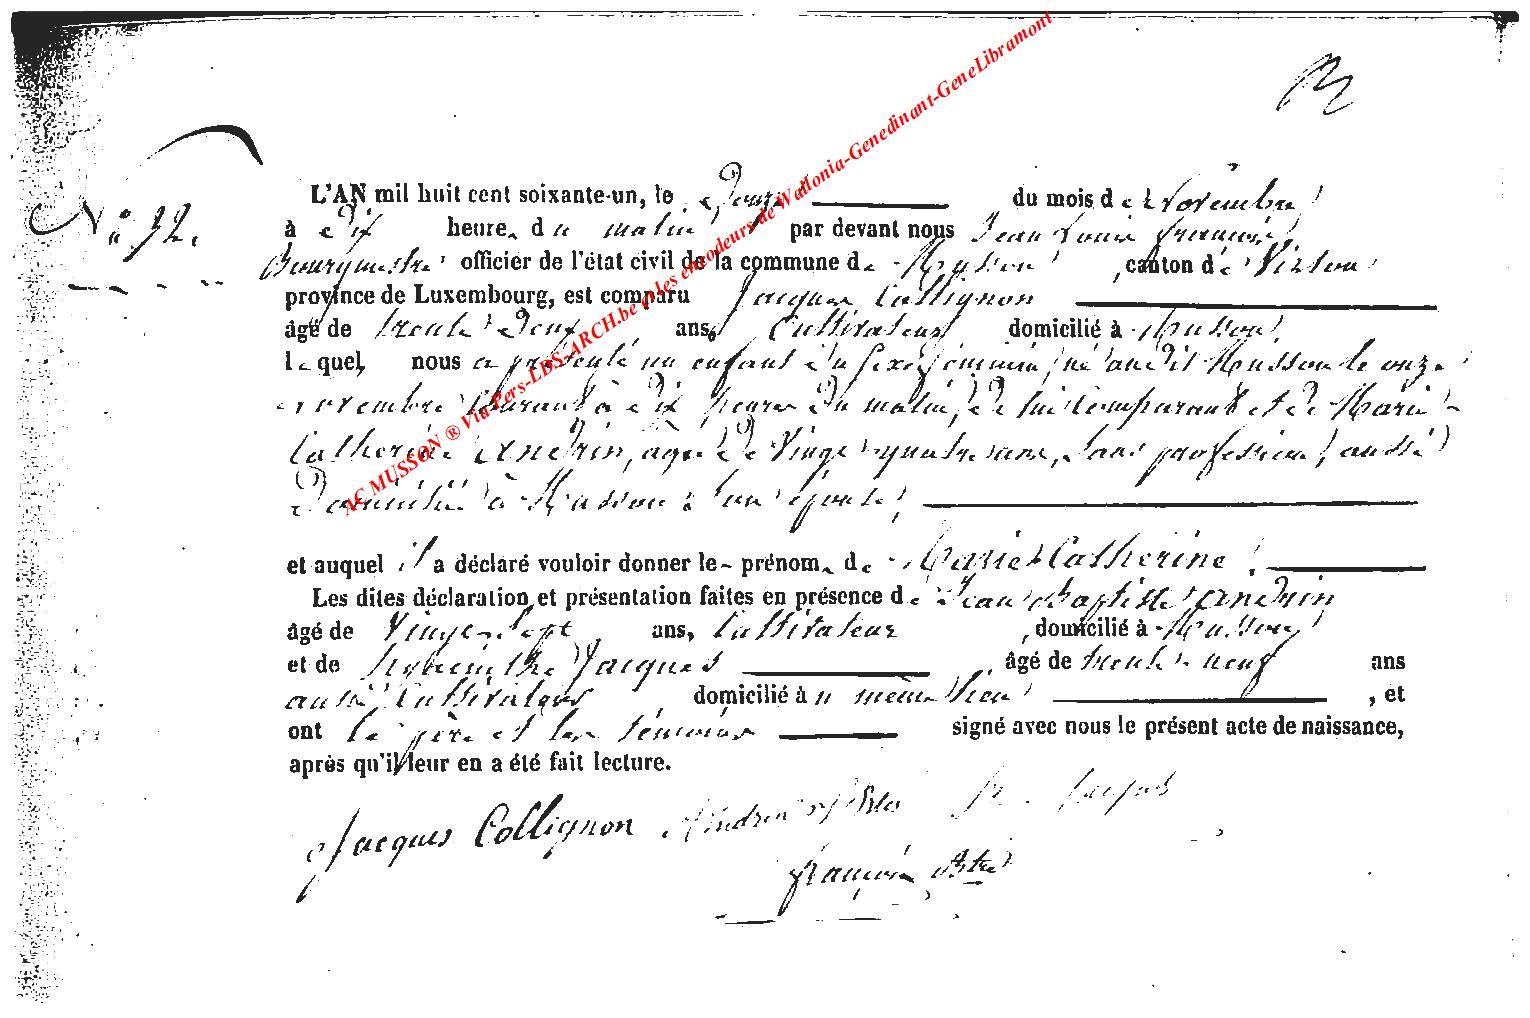 N° 32.
L'AN mil huit cent soixante-un, le Douze du mois de Novembre
à Dix heure du matin par devant nous Jean Louis François
Bourgmestre officier de l'état civil de la commune de Musson, canton de Virton
province de Luxembourg, est comparu Jacques Collignon
âgé de trente Deux ans, Cultivateur domicilié à Musson
lequel, nous a présenté un enfant du sexe féminin, né au dit Musson le onze
novembre courant à Dix heures Du matin, De lui Comparant et De Marie
Catherine Andrin, agée De Vingt quatre ans, Sans profession, aussi
Domiciliée à Musson son épouse,
et auquel il a déclaré vouloir donner le prénom de Marie Catherine.
Les dites déclaration et présentation faites en présence de Jean Baptiste Andrin
âgé de Vingt-Sept ans, Cultivateur, domicilié à Musson
et de Jacques, âgé de trente neuf ans
aussi Cultivateur, domicilié à u même lieu, et
ont le père et les témoins signé avec nous le présent acte de naissance,
après qu'il leur en a été fait lecture.
Jacques Collignon Andrin Jacques
François
AC MUSSON ® Via Pers-LDS-ARCH.be et les encodeurs de Wallonia-Genedinant-GeneLibramont